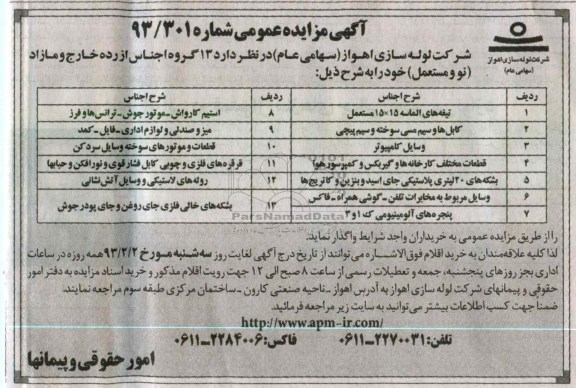 آگهی مزایده عمومی شماره ۹۳/۳۰۱
شرکت لوله سازی اهواز
(سهامی عام)
شرکت لوله سازی اهواز (سهامی عام) در نظر دارد ۱۳ گروه اجناس از رده خارج و مازاد
(نو و مستعمل) خود را به شرح ذیل:
ردیف شرح اجناس ردیف شرح اجناس
۱ تیغه‌های الماسه ۱۵×۱۵ مستعمل ۸ استیم کارواش ـ موتور جوش ـ ترانس‌ها و فرز
۲ کابل‌ها و سیم مسی سوخته و سیم پیچی ۹ میز و صندلی و لوازم اداری ـ فایل ـ کمد
۳ وسایل کامپیوتر ۱۰ قطعات و موتورهای سوخته وسایل سردکن
۴ قطعات مختلف کارخانه‌ها و گیربکس و کمپرسور هوا ۱۱ قرقره‌های فلزی و چوبی کابل فشار قوی و نورافکن و حبابها
۵ بشکه‌های ۲۰ لیتری پلاستیکی جای اسید و بنزین و کاتریج‌ها ۱۲ روله‌های لاستیکی و وسایل آتش‌نشانی
۶ وسایل مربوط به مخابرات تلفن ـ گوشی همراه ـ فاکس ۱۳ بشکه‌های خالی فلزی جای روغن و جای پودر جوش
۷ پنجره‌های آلومینیومی ک ۱ و ۳
ParsNamadData
را از طریق مزایده عمومی به خریداران واجد شرایط واگذار نماید.
لذا کلیه علاقه‌مندان به خرید اقلام فوق‌الاشاره می‌توانند از تاریخ درج آگهی لغایت روز سه‌شنبه مورخ ۹۳/۲/۲ همه روزه در ساعات
اداری بجز روزهای پنجشنبه، جمعه و تعطیلات رسمی از ساعت ۸ صبح الی ۱۲ جهت رویت اقلام مذکور و خرید اسناد مزایده به دفتر امور
حقوقی و پیمانهای شرکت لوله سازی اهواز به آدرس اهواز ـ ناحیه صنعتی کارون ـ ساختمان مرکزی طبقه سوم مراجعه نمایند.
ضمنا جهت کسب اطلاعات بیشتر می‌توانید به سایت زیر مراجعه فرمائید.
http://www.apm-ir.com/
تلفن: ۲۲۷۰۰۳۱-۰۶۱۱ فاکس: ۲۲۸۴۰۰۶-۰۶۱۱
امور حقوقی و پیمانها